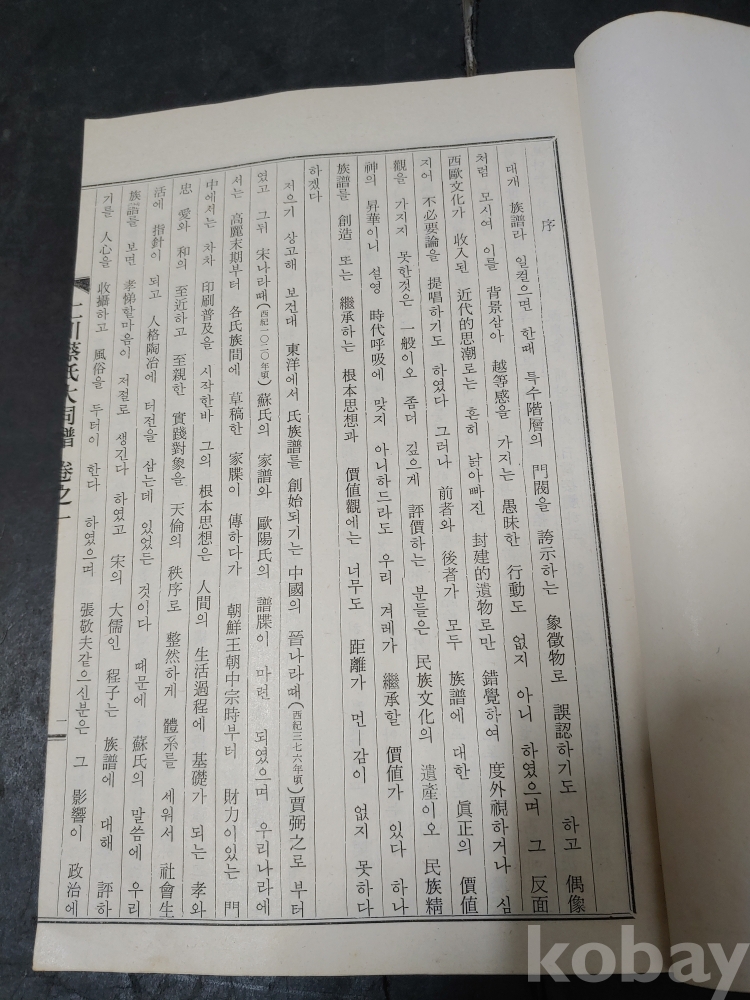 序
대개 族譜라 일컬으면 한때 특수階層의 門閥을 誇示하는 象徵物로 誤認하기도 하고 偶像
처럼 모시여 이를 背景삼아 越等感을 가지는 愚昧한 行動도 없지 아니 하였으며 그 反面
西歐文化가 收入된 近代的思潮로는 흔히 낡아빠진 封建的遺物로만 錯覺하여 度外視하거나 심
지어 不必要論을 提唱하기도 하였다 그러나 前者와 後者가 모두 族譜에 대한 眞正의 價値
觀을 가지지 못한것은 一般이오 좀더 깊으게 評價하는 분들은 民族文化의 遺產이오 民族精
神의 昇華이니 설영 時代呼吸에 맞지 아니하드라도 우리 겨레가 繼承할 價値가 있다 하나
族譜를 創造 또는 繼承하는 根本思想과 價値觀에는 너무도 距離가 먼 감이 없지 못하다
하겠다
저으기 상고해 보건대 東洋에서 氏族譜를 創始되기는 中國의 晉나라때(西紀三七六年頃)賈弼之로 부터
였고 그뒤 宋나라때(西紀一〇二〇年頃)蘇氏의 家譜와 歐陽氏의 譜牒이 마련 되였으며 우리나라에
서는 高麗末期부터 各氏族間에 草稿한 家牒이 傳하다가 朝鮮王朝中宗時부터 財力이있는 門
中에서는 차차 印刷普及을 시작한바 그의 根本思想은 人間의 生活過程에 基礎가 되는 孝와
忠 愛와 和의 至近하고 至親한 實踐對象을 天倫의 秩序로 整然하게 體系를 세워서 社會生
活에 指針이 되고 人格陶冶에 터전을 삼는데 있었든 것이다 때문에 蘇氏의 말씀에 우리
族譜를 보면 孝悌할마음이 저절로 생긴다 하였고 宋의 大儒인 程子는 族譜에 대해 評하
기를 人心을 收攝하고 風俗을 두터이 한다 하였으며 張敬夫같으신분은 그 影響이 政治에
仁川蔡氏大同譜 卷之一
一
kobay